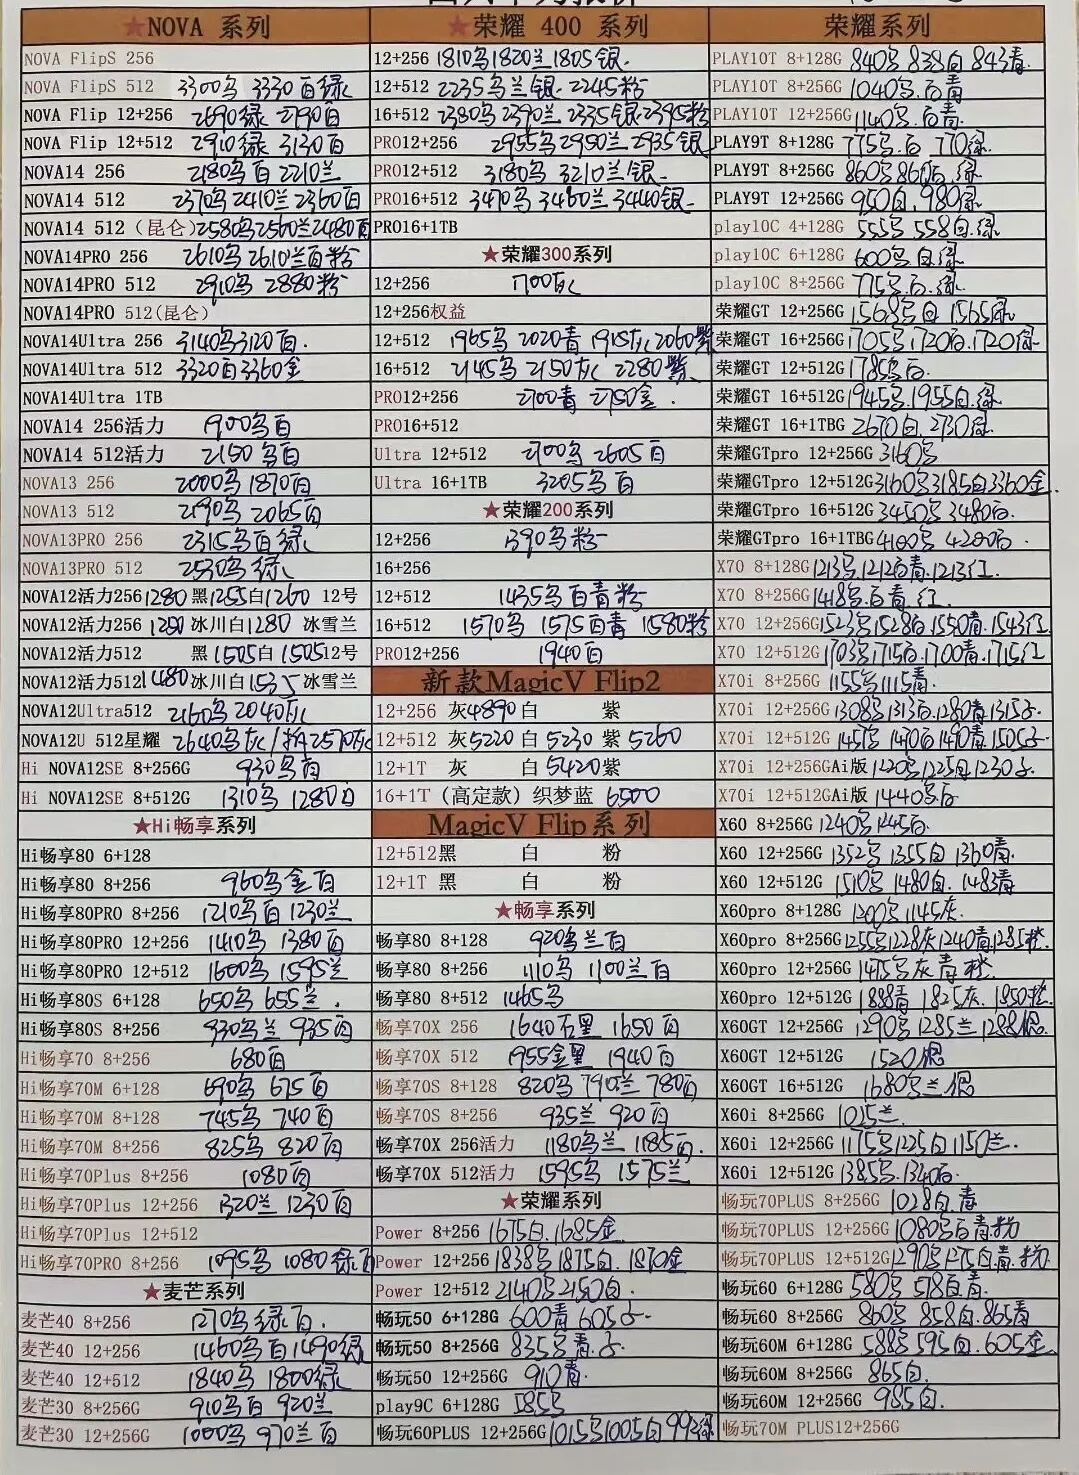 ★NOVA 系列
NOVA FlipS 256
NOVA FlipS 512 3300乌 3330百绿
NOVA Flip 12+256 2690绿 2790百
NOVA Flip 12+512 2910绿 3130百
NOVA14 256 2180乌百 2210兰
NOVA14 512 2370乌 2410兰 2360百
NOVA14 512 (昆仑) 2580乌 2560兰 2480百
NOVA14PRO 256 2610乌 2610兰百粉
NOVA14PRO 512 2910乌 2880粉
NOVA14PRO 512(昆仑)
NOVA14Ultra 256 3140乌 3120百.
NOVA14Ultra 512 3320百 3360金
NOVA14Ultra 1TB
NOVA14 256活力 1900乌百
NOVA14 512活力 2150乌百
NOVA13 256 2000乌 1870百
NOVA13 512 2190乌 2065百
NOVA13PRO 256 2315乌百绿
NOVA13PRO 512 2530乌绿
NOVA12活力256 1280 黑1255白1260 12号
NOVA12活力256 1250 冰川白1280 冰雪兰
NOVA12活力512 黑1505白1505 12号
NOVA12活力512 1480冰川白1535冰雪兰
NOVA12Ultra512 2160乌 2040灰
NOVA12U 512星耀 2640乌灰/粉2570灰
Hi NOVA12SE 8+256G 930乌百
Hi NOVA12SE 8+512G 1310乌 1280百
★Hi畅享系列
Hi畅享80 6+128
Hi畅享80 8+256 960乌金百
Hi畅享80PRO 8+256 1210乌百 1230兰
Hi畅享80PRO 12+256 1410乌 1380百
Hi畅享80PRO 12+512 1600乌 1595兰
Hi畅享80S 6+128 650乌 655兰.
Hi畅享80S 8+256 930乌兰 935百
Hi畅享70 8+256 680百
Hi畅享70M 6+128 690乌 675百
Hi畅享70M 8+128 745乌 740百
Hi畅享70M 8+256 825乌 820百
Hi畅享70Plus 8+256 1080百
Hi畅享70Plus 12+256 1320兰 1230百
Hi畅享70Plus 12+512
Hi畅享70PRO 8+256 1095乌 1080绿百
★麦芒系列
麦芒40 8+256 1270乌绿百.
麦芒40 12+256 1460乌百 1490绿
麦芒40 12+512 1840乌 1800绿
麦芒30 8+256G 910乌百 920兰
麦芒30 12+256G 1000乌 970兰百
★荣耀 400 系列
12+256 1810乌 1820兰 1805银.
12+512 2235乌兰银. 2245粉
16+512 2380乌 2390兰 2335银 2395粉
PRO12+256 2955乌 2950兰 2935银
PRO12+512 3180乌 3210兰银.
PRO16+512 3470乌 3460兰 3440银.
PRO16+1TB
★荣耀300系列
12+256 1700灰
12+256权益
12+512 1965乌 2020青 1915灰 2060紫
16+512 2145乌 2150灰 2280紫
PRO12+256 2700青 2750金.
PRO16+512
Ultra 12+512 2700乌 2605百
Ultra 16+1TB 3205乌百
★荣耀200系列
12+256 1390乌粉
16+256
12+512 1435乌百青粉
16+512 1570乌 1575百青 1580粉
PRO12+256 1940百
新款MagicV Flip2
12+256 灰4890 白 紫
12+512 灰5220 白 5230 紫 5260
12+1T 灰 白 5420紫
16+1T（高定款）织梦蓝 6500
MagicV Flip系列
12+512黑 白 粉
12+1T 黑 白 粉
★畅享系列
畅享80 8+128 920乌兰百
畅享80 8+256 1110乌 1100兰百
畅享80 8+512 1465乌
畅享70X 256 1640 黑 1650百
畅享70X 512 1955金黑 1940百
畅享70S 8+128 820乌 790兰 780百
畅享70S 8+256 935兰 920百
畅享70X 256活力 1180乌兰 1185百.
畅享70X 512活力 1595乌 1575兰
★荣耀系列
Power 8+256 1675白. 1685金.
Power 12+256 1838乌 1875白. 1870金
Power 12+512 2140乌 2150白.
畅玩50 6+128G 600青 605
畅玩50 8+256G 835乌青.
畅玩50 12+256G 910青.
play9C 6+128G 585乌
畅玩60PLUS 12+256G 1015乌 1005白 992绿
荣耀系列
PLAY10T 8+128G 840乌 838白 843青.
PLAY10T 8+256G 1040乌.白青
PLAY10T 12+256G 1140乌.白青.
PLAY9T 8+128G 775乌.白 770绿.
PLAY9T 8+256G 860乌 860白.绿.
PLAY9T 12+256G 950白. 980绿.
play10C 4+128G 555乌 558白.绿.
play10C 6+128G 600乌.白.绿
play10C 8+256G 775乌.白.绿.
荣耀GT 12+256G 1568乌白 1565绿.
荣耀GT 16+256G 1705乌 1720白. 1720绿
荣耀GT 12+512G 1785乌白.
荣耀GT 16+512G 1945乌. 1955白.绿
荣耀GT 16+1TBG 2670白. 2730绿.
荣耀GTpro 12+256G 3160乌
荣耀GTpro 12+512G 3160乌 3185白 3360金.
荣耀GTpro 16+512G 3450乌 3480白.
荣耀GTpro 16+1TBG 4100乌 4200白.
X70 8+128G 1213乌. 1212白青. 1213红.
X70 8+256G 1418乌.白青.红.
X70 12+256G 1523乌 1528白 1550青. 1543红.
X70 12+512G 1703乌 1715白. 1700青. 1715红
X70i 8+256G 1155乌 1115青.
X70i 12+256G 1308乌 1313白. 1280青 1315
X70i 12+512G 1451乌 1490白 1490青 1505
X70i 12+256GAi版 1220乌 1225白 1230
X70i 12+512GAi版 1440乌白
X60 8+256G 1240乌 1245白.
X60 12+256G 1352乌 1355白 1360青.
X60 12+512G 1510乌 1480白. 1483青
X60pro 8+128G 1200乌 1145灰.
X60pro 8+256G 1255乌 1228灰 1240青. 1285橙.
X60pro 12+256G 1475乌灰青橙.
X60pro 12+512G 1888青 1825灰. 1850橙.
X60GT 12+256G 1290乌 1285兰 1288银.
X60GT 12+512G 1520银
X60GT 16+512G 1680乌兰.银
X60i 8+256G 1015兰.
X60i 12+256G 1175乌 1225白 1150兰.
X60i 12+512G 1385乌. 1340白.
畅玩70PLUS 8+256G 1028白.青
畅玩70PLUS 12+256G 1080乌白青.粉
畅玩70PLUS 12+512G 1290乌 1275白.青.粉
畅玩60 6+128G 580乌 518白青.
畅玩60 8+256G 860乌 858白. 865青
畅玩60M 6+128G 588乌 595白. 605金.
畅玩60M 8+256G 865白.
畅玩60M 12+256G 985白.
畅玩70M PLUS12+256G